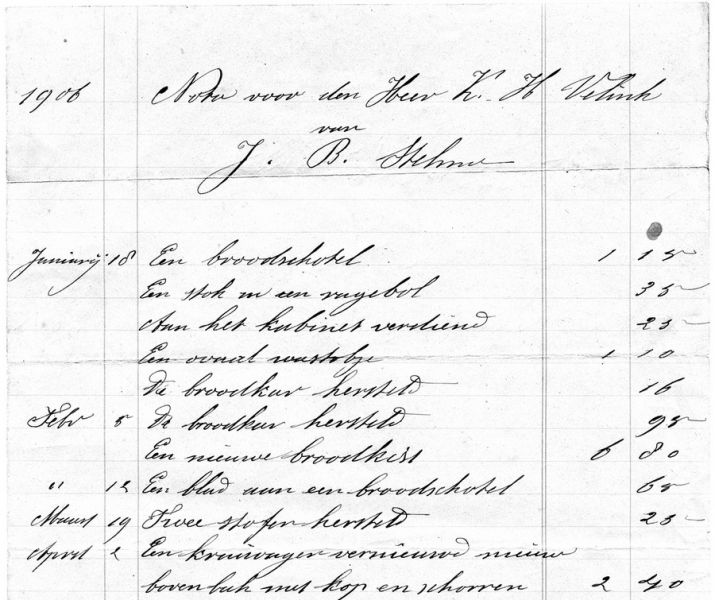 1906 Nota voor den Heer K. H Velink
van
J. B. Stelma
Januarij 18 Een broodschotel 1 15
Een stok in een ragebol 35
Aan het kabinet verdiend 25
Een ovaal wastobje 1 10
De broodkar hersteld 16
Febr 5 De broodkar hersteld 95
Een nieuwe broodkist 6 80
" 12 Een blad aan een broodschotel 65
Maart 19 Twee stofen hersteld 25
April 2 Een kruiwagen vernieuwd nieuw
boven bak met kop en schorren 2 40